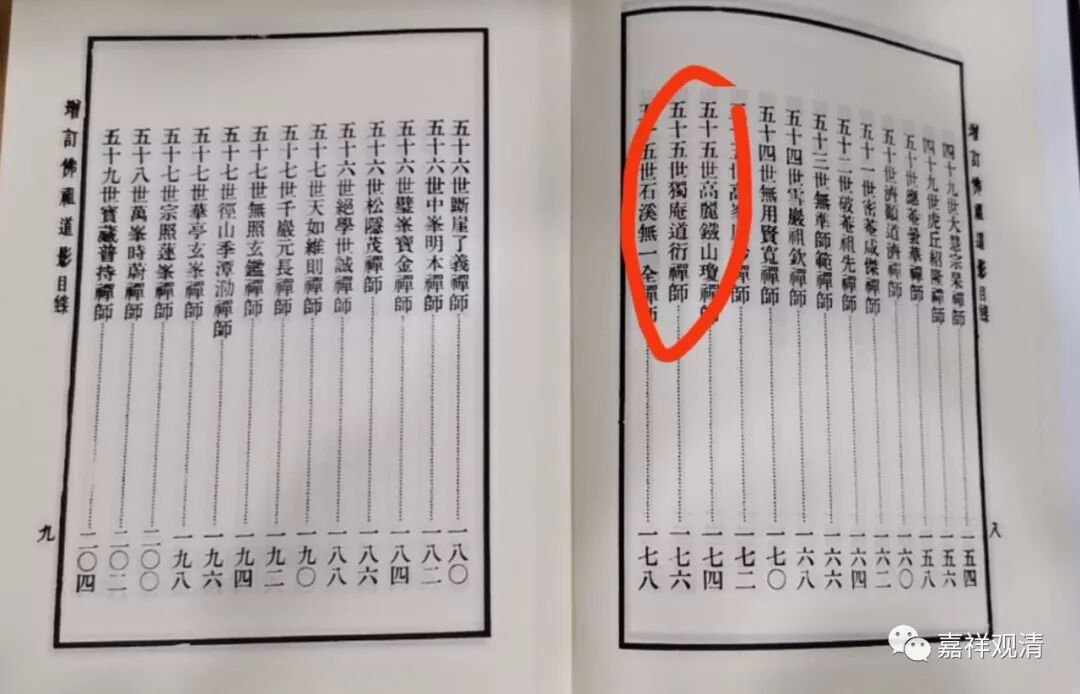 增訂佛祖道影目錄
四十九世大慧宗杲禪師 一五四
四十九世虎丘紹隆禪師 一五六
五十世應菴曇華禪師 一五八
五十世濟顛道濟禪師 一六〇
五十一世密菴咸傑禪師 一六二
五十二世破菴祖先禪師 一六四
五十三世無準師範禪師 一六六
五十四世雪巖祖欽禪師 一六八
五十四世無用賢寬禪師 一七〇
五世高峯禪師 一七二
五十五世高麗鐵山瓊禪師 一七四
五十五世獨庵道衍禪師 一七六
五十五世石溪無一全禪師 一七八
八
五十六世斷崖了義禪師 一八〇
五十六世中峯明本禪師 一八二
五十六世璧峯寶金禪師 一八四
五十六世松隱茂禪師 一八六
五十六世絕學世誠禪師 一八八
五十七世天如維則禪師 一九〇
五十七世千巖元長禪師 一九二
五十七世無照玄鑑禪師 一九四
五十七世徑山季潭泐禪師 一九六
五十七世華亭玄峯禪師 一九八
五十七世宗照蓮峯禪師 二〇〇
五十八世萬峯時蔚禪師 二〇二
五十九世寶藏普持禪師 二〇四
增訂佛祖道影目錄
九
嘉祥观清